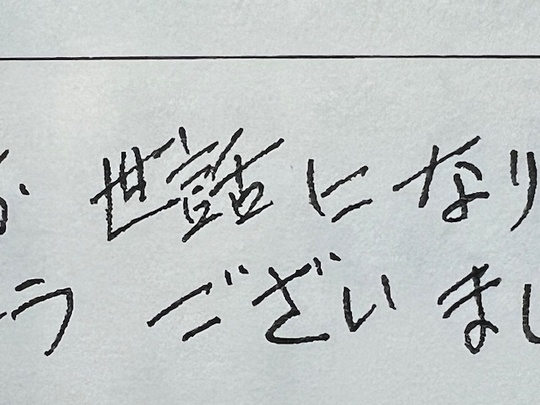 お世話になり
うございまし